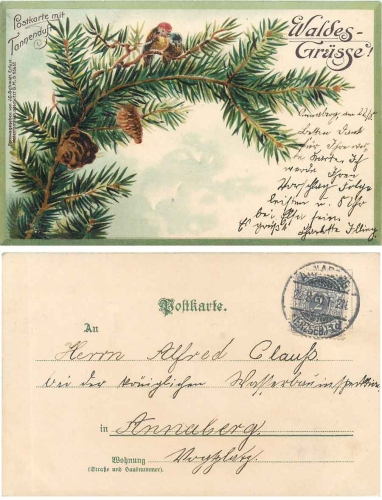 Postkarte mit
Tannenduft
Waldes-
Grüsse!
Annaberg, den 22/8
Besten Dank
für Ihre
Karte. Ich
werde Ihren
Vorschlag Folge
leisten u. 5 Uhr
bei
Es grüßt Charlotte
Postkarte.
An
Herrn Alfred Clauß
bei der königlichen Wasserbauinspektion
in Annaberg.
Wohnung Vogtplatz.
(Straße und Hausnummer)